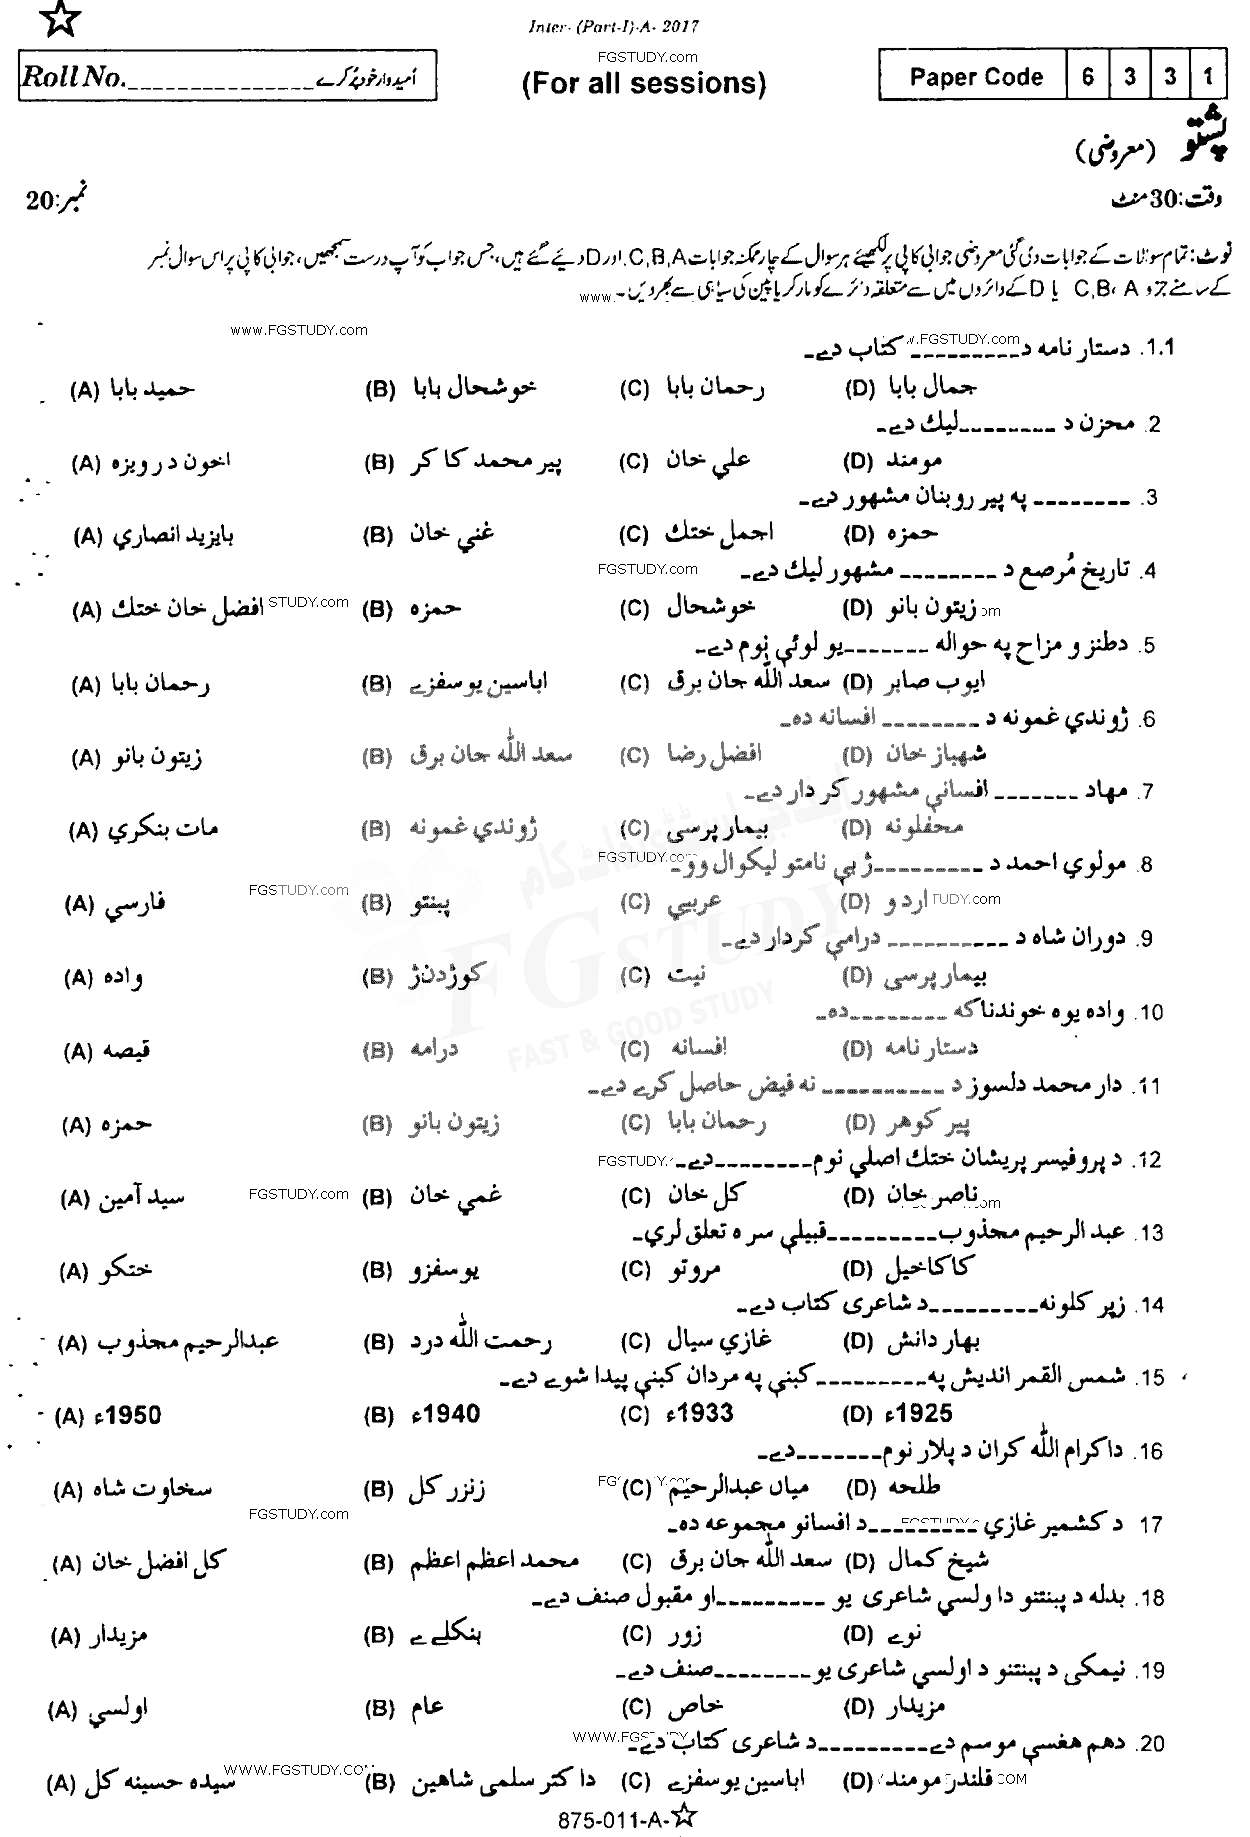 Inter- (Part-I)-A- 2017
FGSTUDY.com
Roll No._______________اُمیدوار خود پُر کرے
(For all sessions)
Paper Code 6 3 3 1
پشتو (معروضی)
وقت:30 منٹ
نمبر:20
نوٹ: تمام سوالات کے جوابات دی گئی معروضی جوابی کاپی پر لکھیئے ہر سوال کے چار ممکنہ جوابات C,B,A اور D دیئے گئے ہیں، جس جواب کو آپ درست سمجھیں، جوابی کاپی پر اس سوال نمبر
کے سامنے جزو C,B، A یا D کے دائروں میں سے متعلقہ دائرے کو مارکر یا پین کی سیاہی سے بھر دیں۔ www.
www.FGSTUDY.com
1.1. دستار نامه د_________ کتاب دے۔ v.FGSTUDY.com
(A) حمید بابا (B) خوشحال بابا (C) رحمان بابا (D) جمال بابا
2. محزن د ________لیك دے۔
(A) اخون درویزه (B) پیر محمد کاکر (C) علي خان (D) مومند
3. ________ په پیر روښان مشهور دے۔
(A) بایزید انصاري (B) غني خان (C) اجمل ختك (D) حمزه
4. تاریخ مُرصع د ________ مشهور لیك دے۔ FGSTUDY.com
(A) افضل خان ختك STUDY.com (B) حمزه (C) خوشحال (D) زیتون بانو om
5. دطنز و مزاح په حواله _______یو لوئې نوم دے۔
(A) رحمان بابا (B) اباسین یوسفزے (C) سعد الله جان برق (D) ایوب صابر
6. ژوندي غمونه د ________ افسانه ده۔
(A) زیتون بانو (B) سعد الله جان برق (C) افضل رضا (D) شهباز خان
7. مهاد _______ افسانې مشهور کردار دے۔
(A) مات بنکړي (B) ژوندي غمونه (C) بیمار پرسی (D) محفلونه
8. مولوي احمد د _________ژبې نامتو لیکوال وو۔ FGSTUDY.com
(A) فارسي FGSTUDY.com (B) پښتو (C) عربیي (D) اردو TUDY.com
9. دوران شاه د __________ درامې کردار دے۔
(A) واده (B) کوژدنژ (C) نیت (D) بیمار پرسی
10. واده یوه خوندناکه ________ده۔
(A) قیصه (B) درامه (C) افسانه (D) دستار نامه
11. دار محمد دلسوز د __________ نه فیض حاصل کړے دے۔
(A) حمزه (B) زیتون بانو (C) رحمان بابا (D) پیر گوهر
12. د پروفیسر پریشان ختك اصلي نوم________دے۔ FGSTUDY.
(A) سید آمین FGSTUDY.com (B) غمي خان (C) گل خان (D) ناصر خان om
13. عبد الرحیم مجذوب_________قبیلې سره تعلق لري۔
(A) ختکو (B) یوسفزو (C) مروتو (D) کاکاخیل
14. زېړ ګلونه_________د شاعرۍ کتاب دے۔
(A) عبدالرحیم مجذوب (B) رحمت الله درد (C) غازي سیال (D) بهار دانش
15. شمس القمر اندیش په_________ کښې په مردان کښې پیدا شوے دے۔
(A) 1950ء (B) 1940ء (C) 1933ء (D) 1925ء
16. داکرام الله گران د پلار نوم_______دے۔
(A) سخاوت شاه (B) زنزر گل (C) میاں عبدالرحیم (D) طلحه
FGSTUDY.com
17 د کشمیر غازي _________د افسانو مجموعه ده۔
(A) گل افضل خان (B) محمد اعظم اعظم (C) سعد الله جان برق (D) شیخ کمال
18. بدله د پښتنو دا ولسي شاعرۍ یو _________او مقبول صنف دے۔
(A) مزیدار (B) ښکلے ے (C) زوړ (D) نوے
19. نیمکۍ د پښتنو د اولسي شاعرۍ یو________صنف دے۔
(A) اولسي (B) عام (C) خاص (D) مزیدار
20. دهم هغسې موسم دے_________د شاعرۍ کتاب دے۔ WWW.FGSTUDY
(A) سیده حسینه گل WWW.FGSTUDY.COM (B) داکتر سلمی شاهین (C) اباسین یوسفزے (D) قلندر مومند COM
875-011-A-☆
FGSTUDY
FAST & GOOD STUDY